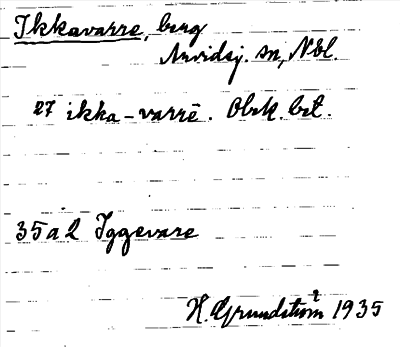 Ikkavarre, berg
Arvidsj. sn, Nbl.
27 ikka-varrē. Obek. bet.
35a2 Iggevare
H. Grundström 1935